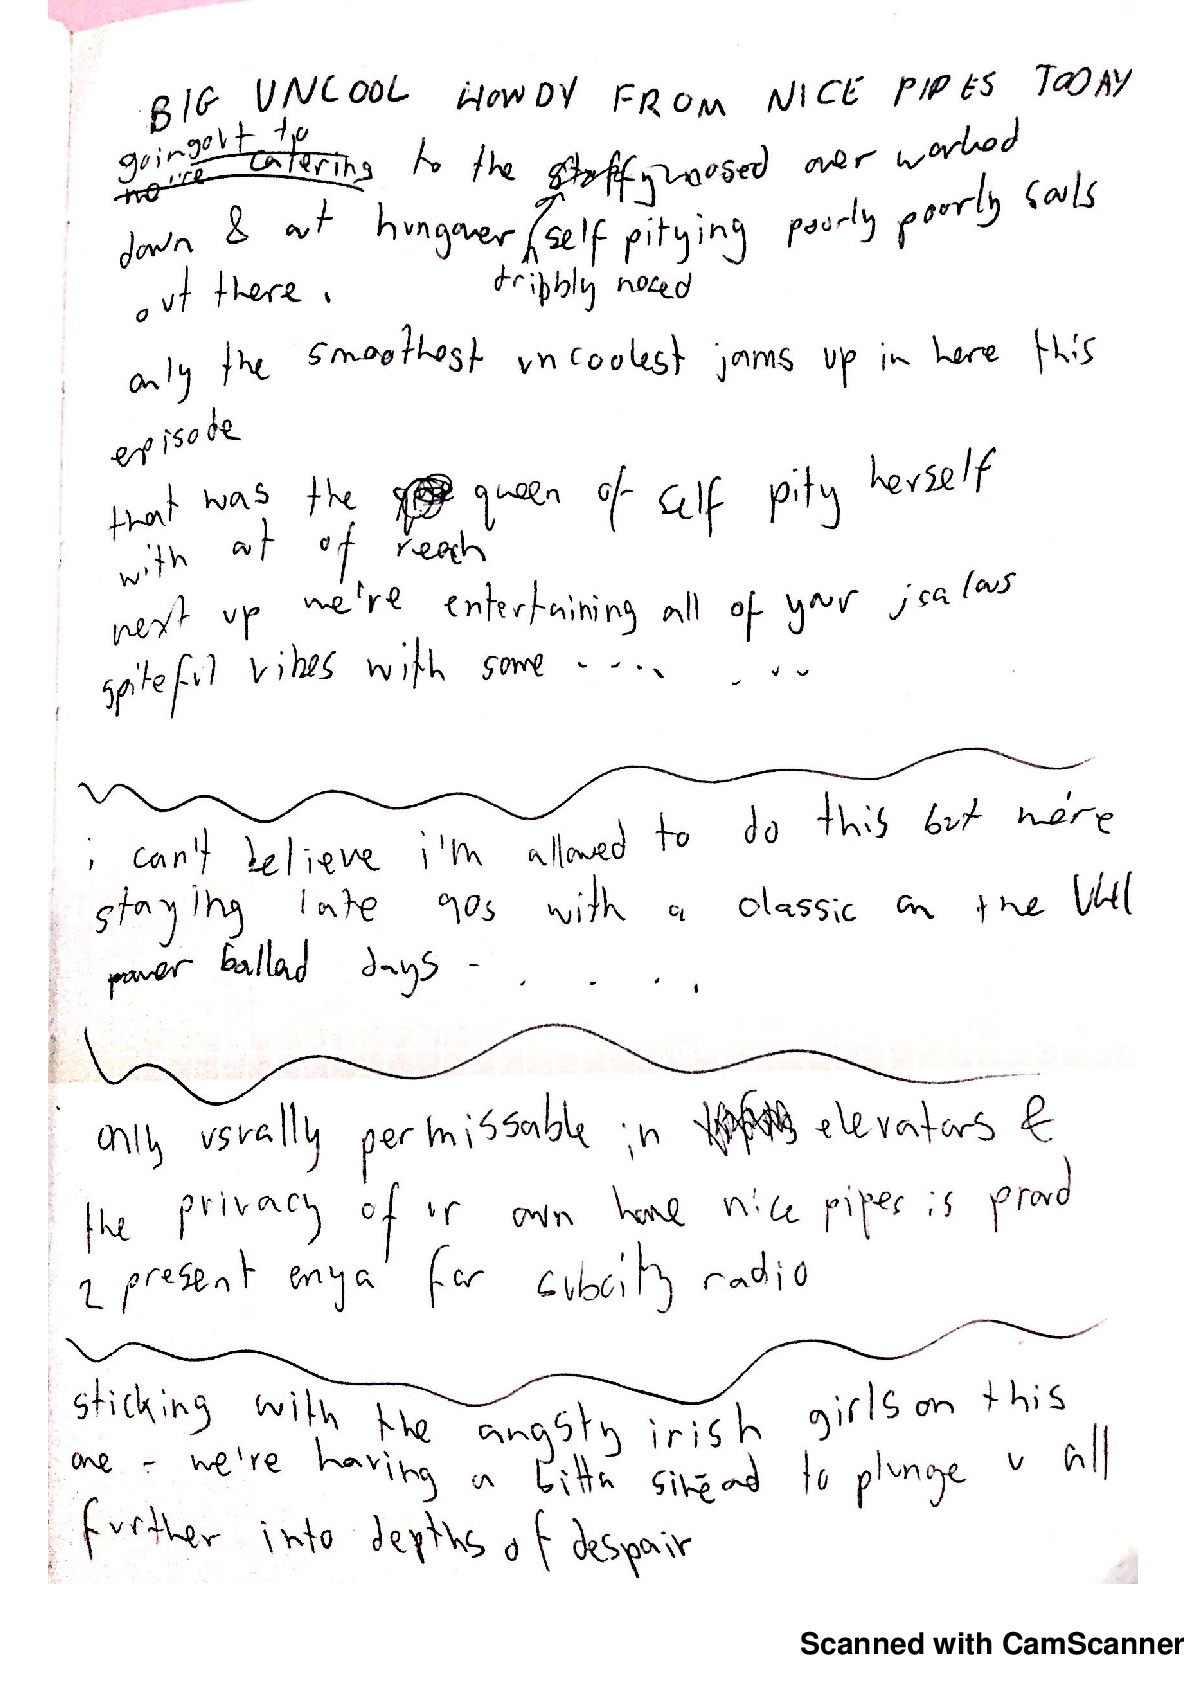 BIG UNCOOL HOWDY FROM NICE PIPES TODAY
going out to
we're catering to the stuffy noosed over worked
down & out hungover self pitying poorly poorly souls
dribbly nosed
out there.
only the smoothest uncoolest jams up in here this
episode
that was the queen of self pity herself
with out of reach
next up we're entertaining all of your jealous
spiteful vibes with some .... ...
i can't believe i'm allowed to do this but we're
staying late 90s with a classic on the VH1
power ballad days - . . . .
only usually permissable in elevators &
the privacy of ur own home nice pipes is proud
2 present enya for subcity radio
sticking with the angsty irish girls on this
one - we're having a bitta sinead to plunge u all
further into depths of despair
Scanned with CamScanner